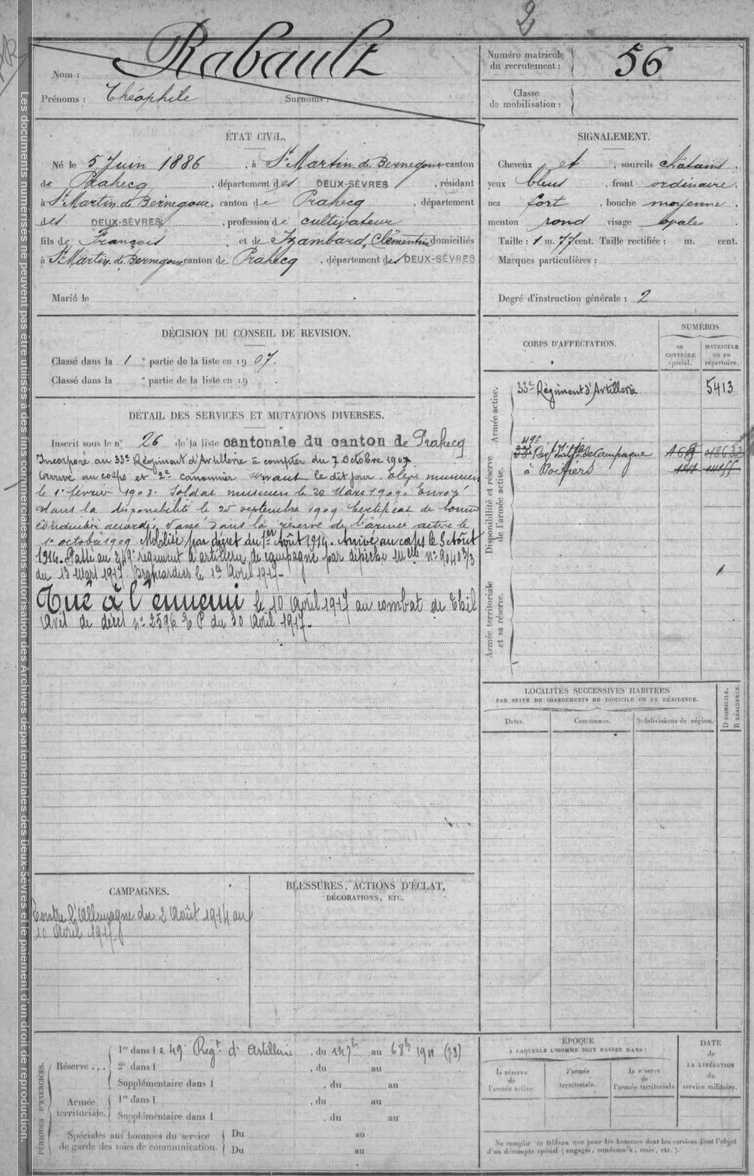 2
Rabault
Nom :
Prénoms : Théophile Surnoms :
Numéro matricule du recrutement : 56
Classe de mobilisation :
ÉTAT CIVIL.
Né le 5 Juin 1886, à St Martin de Bernegoue canton
de Prahecq, département des DEUX-SÈVRES, résidant
à St Martin de Bernegoue, canton de Prahecq, département
des DEUX-SÈVRES, profession de cultivateur
fils de François et de Izambard, Clémentine domiciliés
à St Martin de Bernegoue canton de Prahecq, département des DEUX-SÈVRES
Marié le
SIGNALEMENT.
Cheveux et, sourcils châtains.
yeux bleus, front ordinaire.
nez fort, bouche moyenne.
menton rond visage ovale.
Taille : 1 m. 77 cent. Taille rectifiée : m. cent.
Marques particulières :
Degré d'instruction générale : 2
DÉCISION DU CONSEIL DE REVISION.
Classé dans la 1e partie de la liste en 1907.
Classé dans la e partie de la liste en 19 .
DÉTAIL DES SERVICES ET MUTATIONS DIVERSES.
Inscrit sous le n° 26 de la liste cantonale du canton de Prahecq
Incorporé au 33e Régiment d'Artillerie à compter du 7 octobre 1907
Arrivé au corps et 2e canonnier servant le dit jour. Elève musicien
le 1er février 1908. Soldat musicien le 20 Mars 1909. Envoyé
dans la disponibilité le 25 septembre 1909 Certificat de bonne
conduite accordé. Passé dans la réserve de l'armée active le
1er octobre 1909 Mobilisé par décret du 1er Août 1914. Arrivé au corps le 3 Août
1914. Passé au 249e régiment d'artillerie de campagne par dépêche mlle n°
du 13 Mars 1917 le 1er Avril 1917.
Tué à l'ennemi le 10 Avril 1917 au combat de Thil
Avis de décès n° 2596 du 30 Avril 1917.
CORPS D'AFFECTATION.
NUMÉROS
AU CONTRÔLE spécial.
MATRICULE OU AU répertoire.
Armée active.
33e Régiment d'Artillerie 5413
Disponibilité et réserve de l'armée active.
49e
à Poitiers
Armée territoriale et sa réserve.
LOCALITÉS SUCCESSIVES HABITÉES
PAR SUITE DE CHANGEMENTS DE DOMICILE OU DE RÉSIDENCE.
Dates. Communes. Subdivisions de région. D DOMICILE. R RÉSIDENCE.
CAMPAGNES.
Contre l'Allemagne du 2 Août 1914 au
10 Avril 1917
BLESSURES, ACTIONS D'ÉCLAT,
DÉCORATIONS, ETC.
PÉRIODES D'EXERCICES.
Réserve ...
1re dans l e 49 Regt d'Artillerie, du au
2e dans l , du au
Supplémentaire dans l , du au
Armée territoriale.
1re dans l , du au
Supplémentaire dans l , du au
Spéciales aux hommes du service de garde des voies de communication.
Du au
Du au
ÉPOQUE
À LAQUELLE L'HOMME DOIT PASSER DANS :
la réserve de l'armée active.
l'armée territoriale.
la réserve de l'armée territoriale.
DATE de LA LIBÉRATION du service militaire.
Ne remplir ce tableau que pour les hommes dont les services font l'objet
d'un décompte spécial (engagés, condamnés, omis, etc.).
Les documents numérisés ne peuvent pas être utilisés à des fins commerciales sans autorisation des Archives départementales des Deux-Sèvres et le paiement d'un droit de reproduction.